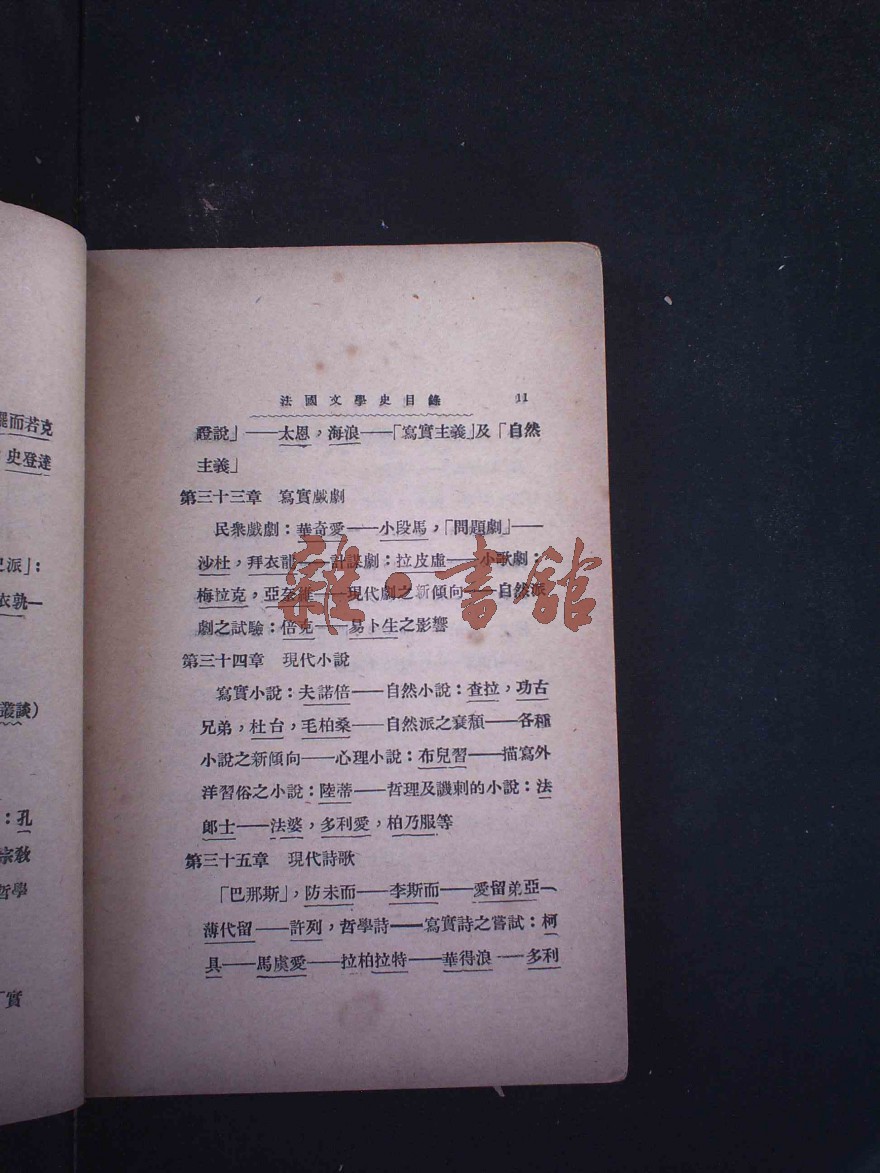 選而若克
史登達
史派」:
衣孰—
叢談)
:孔
宗教
哲學
「實
法國文學史目錄 11
證說」——太恩,海浪——「寫實主義」及「自然
主義」
第三十三章 寫實戲劇
民衆戲劇:華奇愛——小段馬,「問題劇」——
沙杜,拜衣龍——計謀劇:拉皮虛——小歌劇:
梅拉克,亞奈維——現代劇之新傾向——自然派
劇之試驗:倍克——易卜生之影響
第三十四章 現代小說
寫實小說:夫諾倍——自然小說:查拉,功古
兄弟,杜台,毛柏桑——自然派之衰頹——各種
小說之新傾向——心理小說:布兒習——描寫外
洋習俗之小說:陸蒂——哲理及譏刺的小說:法
郎士——法婆,多利愛,柏乃服等
第三十五章 現代詩歌
「巴那斯」,防未而——李斯而——愛留弟亞—
薄代留——許列,哲學詩——寫實詩之嘗試:柯
具——馬虞愛——拉柏拉特——華得浪——多利
雜·書館